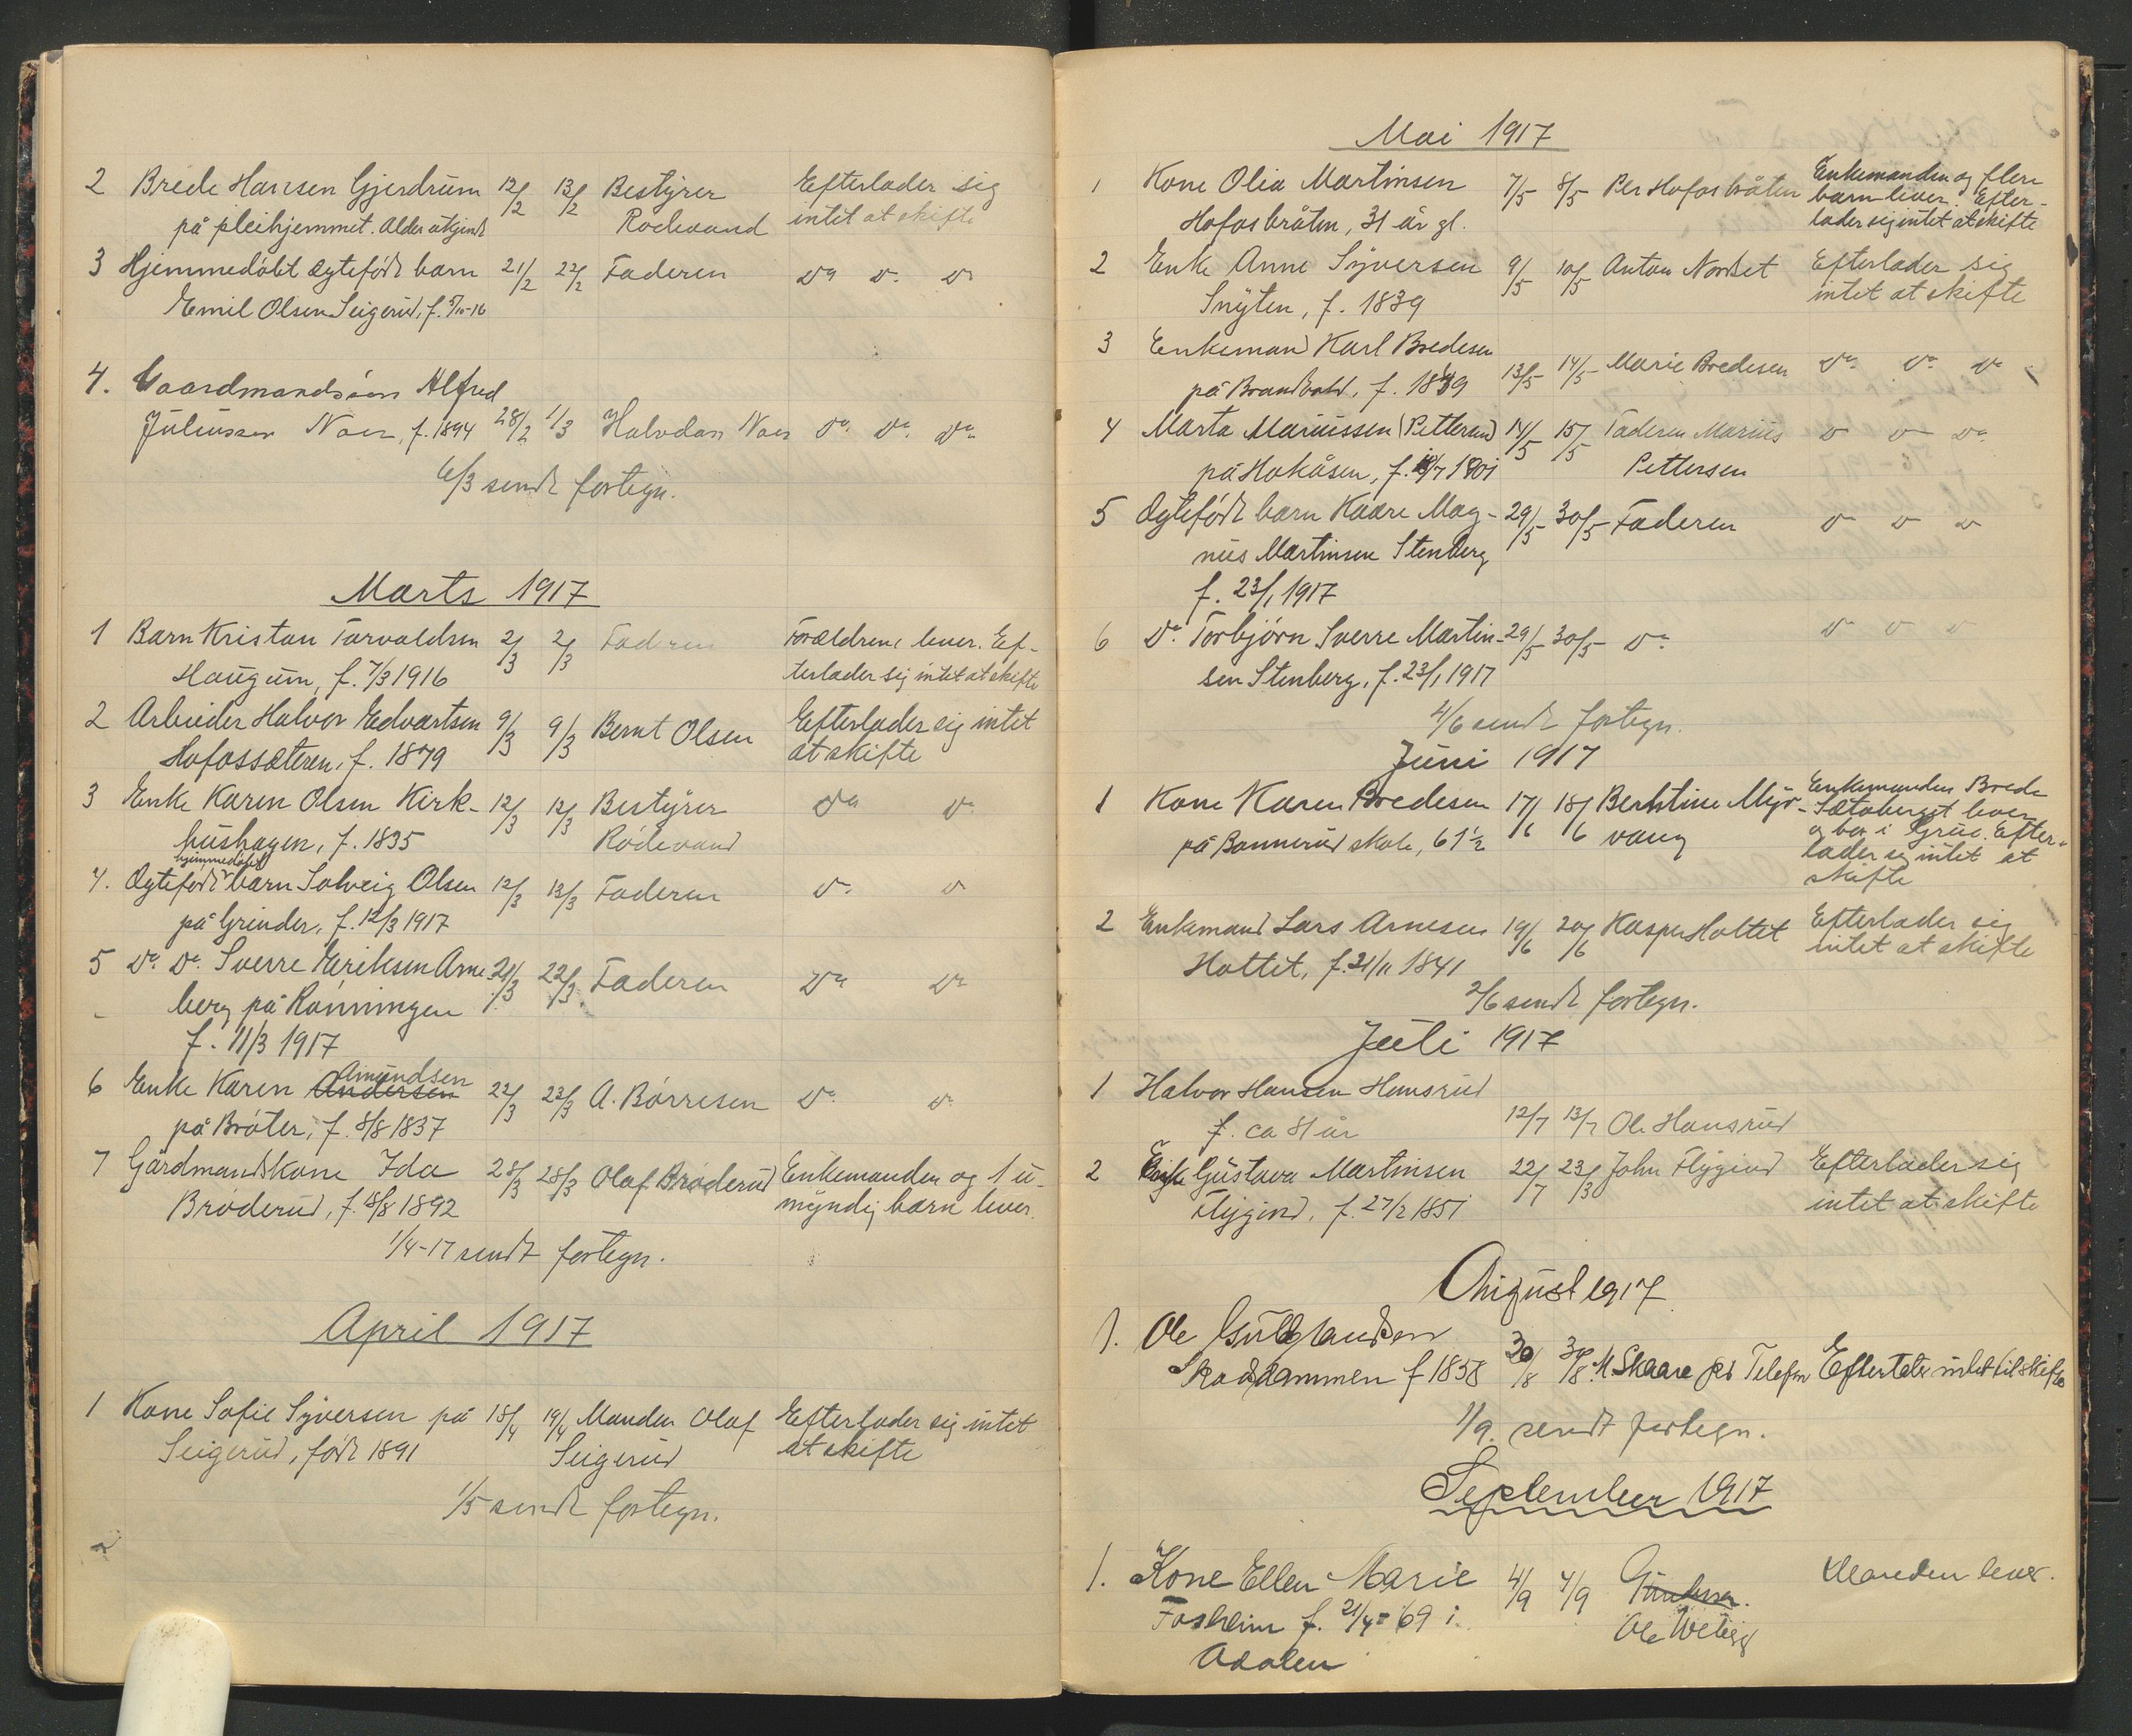 2 Brede Hansen Gjerdrum 12/2 13/2 Bestyrer Efterlader sig
på pleihjemmet. Alder ukjendt Rødevand intet at skifte
3 Hjemmedøbt ægtefødt barn 21/2 22/2 Faderen Do Do Do
Emil Olsen Seigerud, f. 5/10-16
4. Gaardmandssøn Alfred
Juliussen Noer, f. 1894 28/2 1/3 Halvdan Noer Do Do Do
6/3 sendt fortegn.
Marts 1917
1 Barn Kristan Torvaldsen 2/3 2/3 Faderen Forældrene lever. Ef-
Haugum, f. 7/3 1916 terlader sig intet at skifte
2 Arbeider Halvor Edvartsen 9/3 9/3 Bernt Olsen Efterlader sig intet
Hofossæteren, f. 1879 at skifte
3 Enke Karen Olsen Kirk- 12/3 12/3 Bestyrer Do Do
hushagen, f. 1835 Rødevand
hjemmedøbt
4. Ægtefødt barn Solveig Olsen 12/3 13/3 Faderen Do Do
på Grinder, f. 12/3 1917
5 Do Do Sverre Eriksen Arne- 21/3 22/3 Faderen Do Do
berg på Rønningen
f. 11/3 1917
Amundsen
6 Enke Karen Andersen 22/3 23/3 A. Børresen Do Do
på Bråter, f. 8/8 1837
7 Gårdmandskone Ida 28/3 28/3 Olaf Brøderud Enkemanden og 1 u-
Brøderud, f. 8/8 1892 myndig barn lever.
1/4-17 sendt fortegn.
April 1917
1 Kone Sofie Syversen på 18/4 19/4 Manden Olaf Efterlader sig intet
Seigerud, født 1891 Seigerud at skifte
1/5 sendt fortegn.
Mai 1917
1 Kone Olia Martinsen 7/5 8/5 Per Hofosbråten Enkemanden og flere
barn lever. Efter-
Hofosbråten, 31 år gl. lader sig intet at skifte
2 Enke Anne Syversen 9/5 10/5 Anton Norbet Efterlader sig
Snyten, f. 1839 intet at skifte
3 Enkemand Karl Bredesen
på Brandvold, f. 1839 13/5 14/5 Marie Bredesen Do Do Do
4 Marta Mariussen (Pettersen) 14/5 15/5 Faderen Marius Do Do Do
på Hokåsen, f. /7 1901 Pettersen
5 Ægtefødt barn Kaare Mag- 29/5 30/5 Faderen Do Do Do
nus Martinsen Stenberg
f. 23/1 1917
6 Do Torbjørn Sverre Martin- 29/5 30/5 Do Do Do Do
sen Stenberg, f. 23/1 1917
4/6 sendt fortegn.
Juni 1917
1 Kone Karen Bredesen 17/6 18/6 Berhtine Myr- Enkemanden Brede
Sætaberget lever
på Bonnerud skole, 61½ vang og bor i Grue. Efter-
lader sig intet at
skifte
2 Enkemand Lars Arnesen 19/6 20/6 Kasper Hottet Efterlader sig
Hottet, f. 21/11 1841 intet at skifte
2/6 sendt fortegn.
Juli 1917
1 Halvor Hansen Hansrud
f. ca 81 år 12/7 13/7 Ole Hansrud
2 Enke Gustava Martinsen 22/7 23/3 John Flygind Efterlader sig
Flygind, f. 27/2 1851 intet at skifte
August 1917
1. Ole Gulbrandsen
Skaddammen f 1858 30/8 30/8 M. Skaare per Telefon Efterlater intet til skifte
1/9. sendt fortegn.
September 1917
1. Kone Ellen Marie 4/9 4/9 Manden lever.
Fosheim f. 21/4-69 i Ole
Adalen